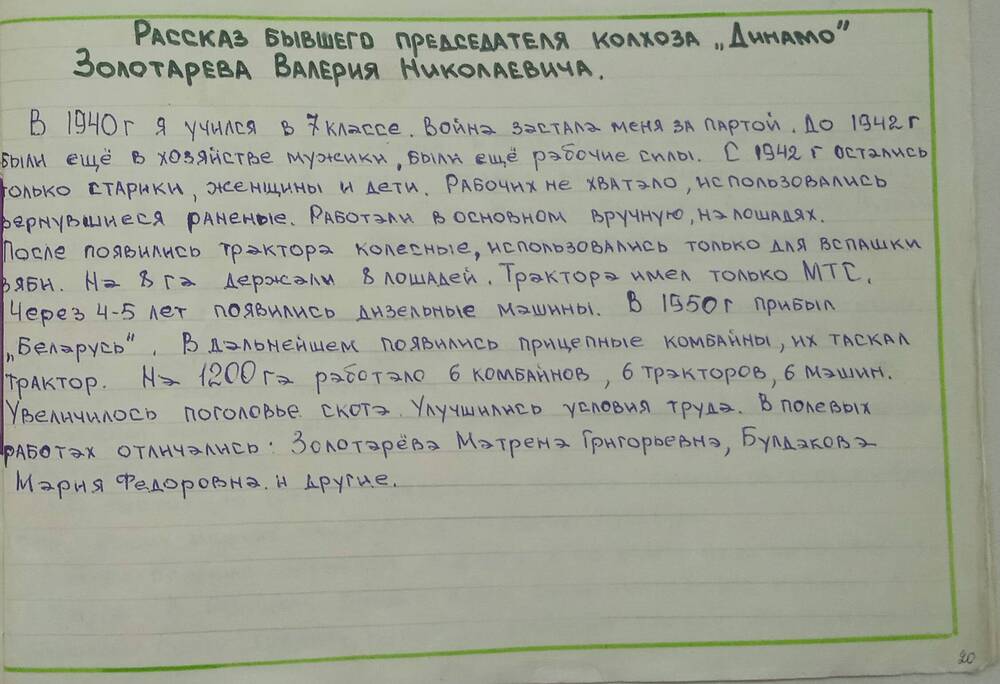 Рассказ бывшего председателя колхоза „Динамо"
Золотарева Валерия Николаевича.
В 1940г я учился в 7 классе. Война застала меня за партой. До 1942г
были ещё в хозяйстве мужики, были ещё рабочие силы. С 1942г остались
только старики, женщины и дети. Рабочих не хватало, использовались
вернувшиеся раненые. Работали в основном вручную, на лошадях.
После появились трактора колесные, использовались только для вспашки
зяби. На 8 га держали 8 лошадей. Трактора имел только МТС.
Через 4-5 лет появились дизельные машины. В 1950г прибыл
„Беларусь". В дальнейшем появились прицепные комбайны, их таскал
трактор. На 1200га работало 6 комбайнов, 6 тракторов, 6 машин.
Увеличилось поголовье скота. Улучшились условия труда. В полевых
работах отличались: Золотарёва Матрена Григорьевна, Булдакова
Мария Федоровна. и другие.
20